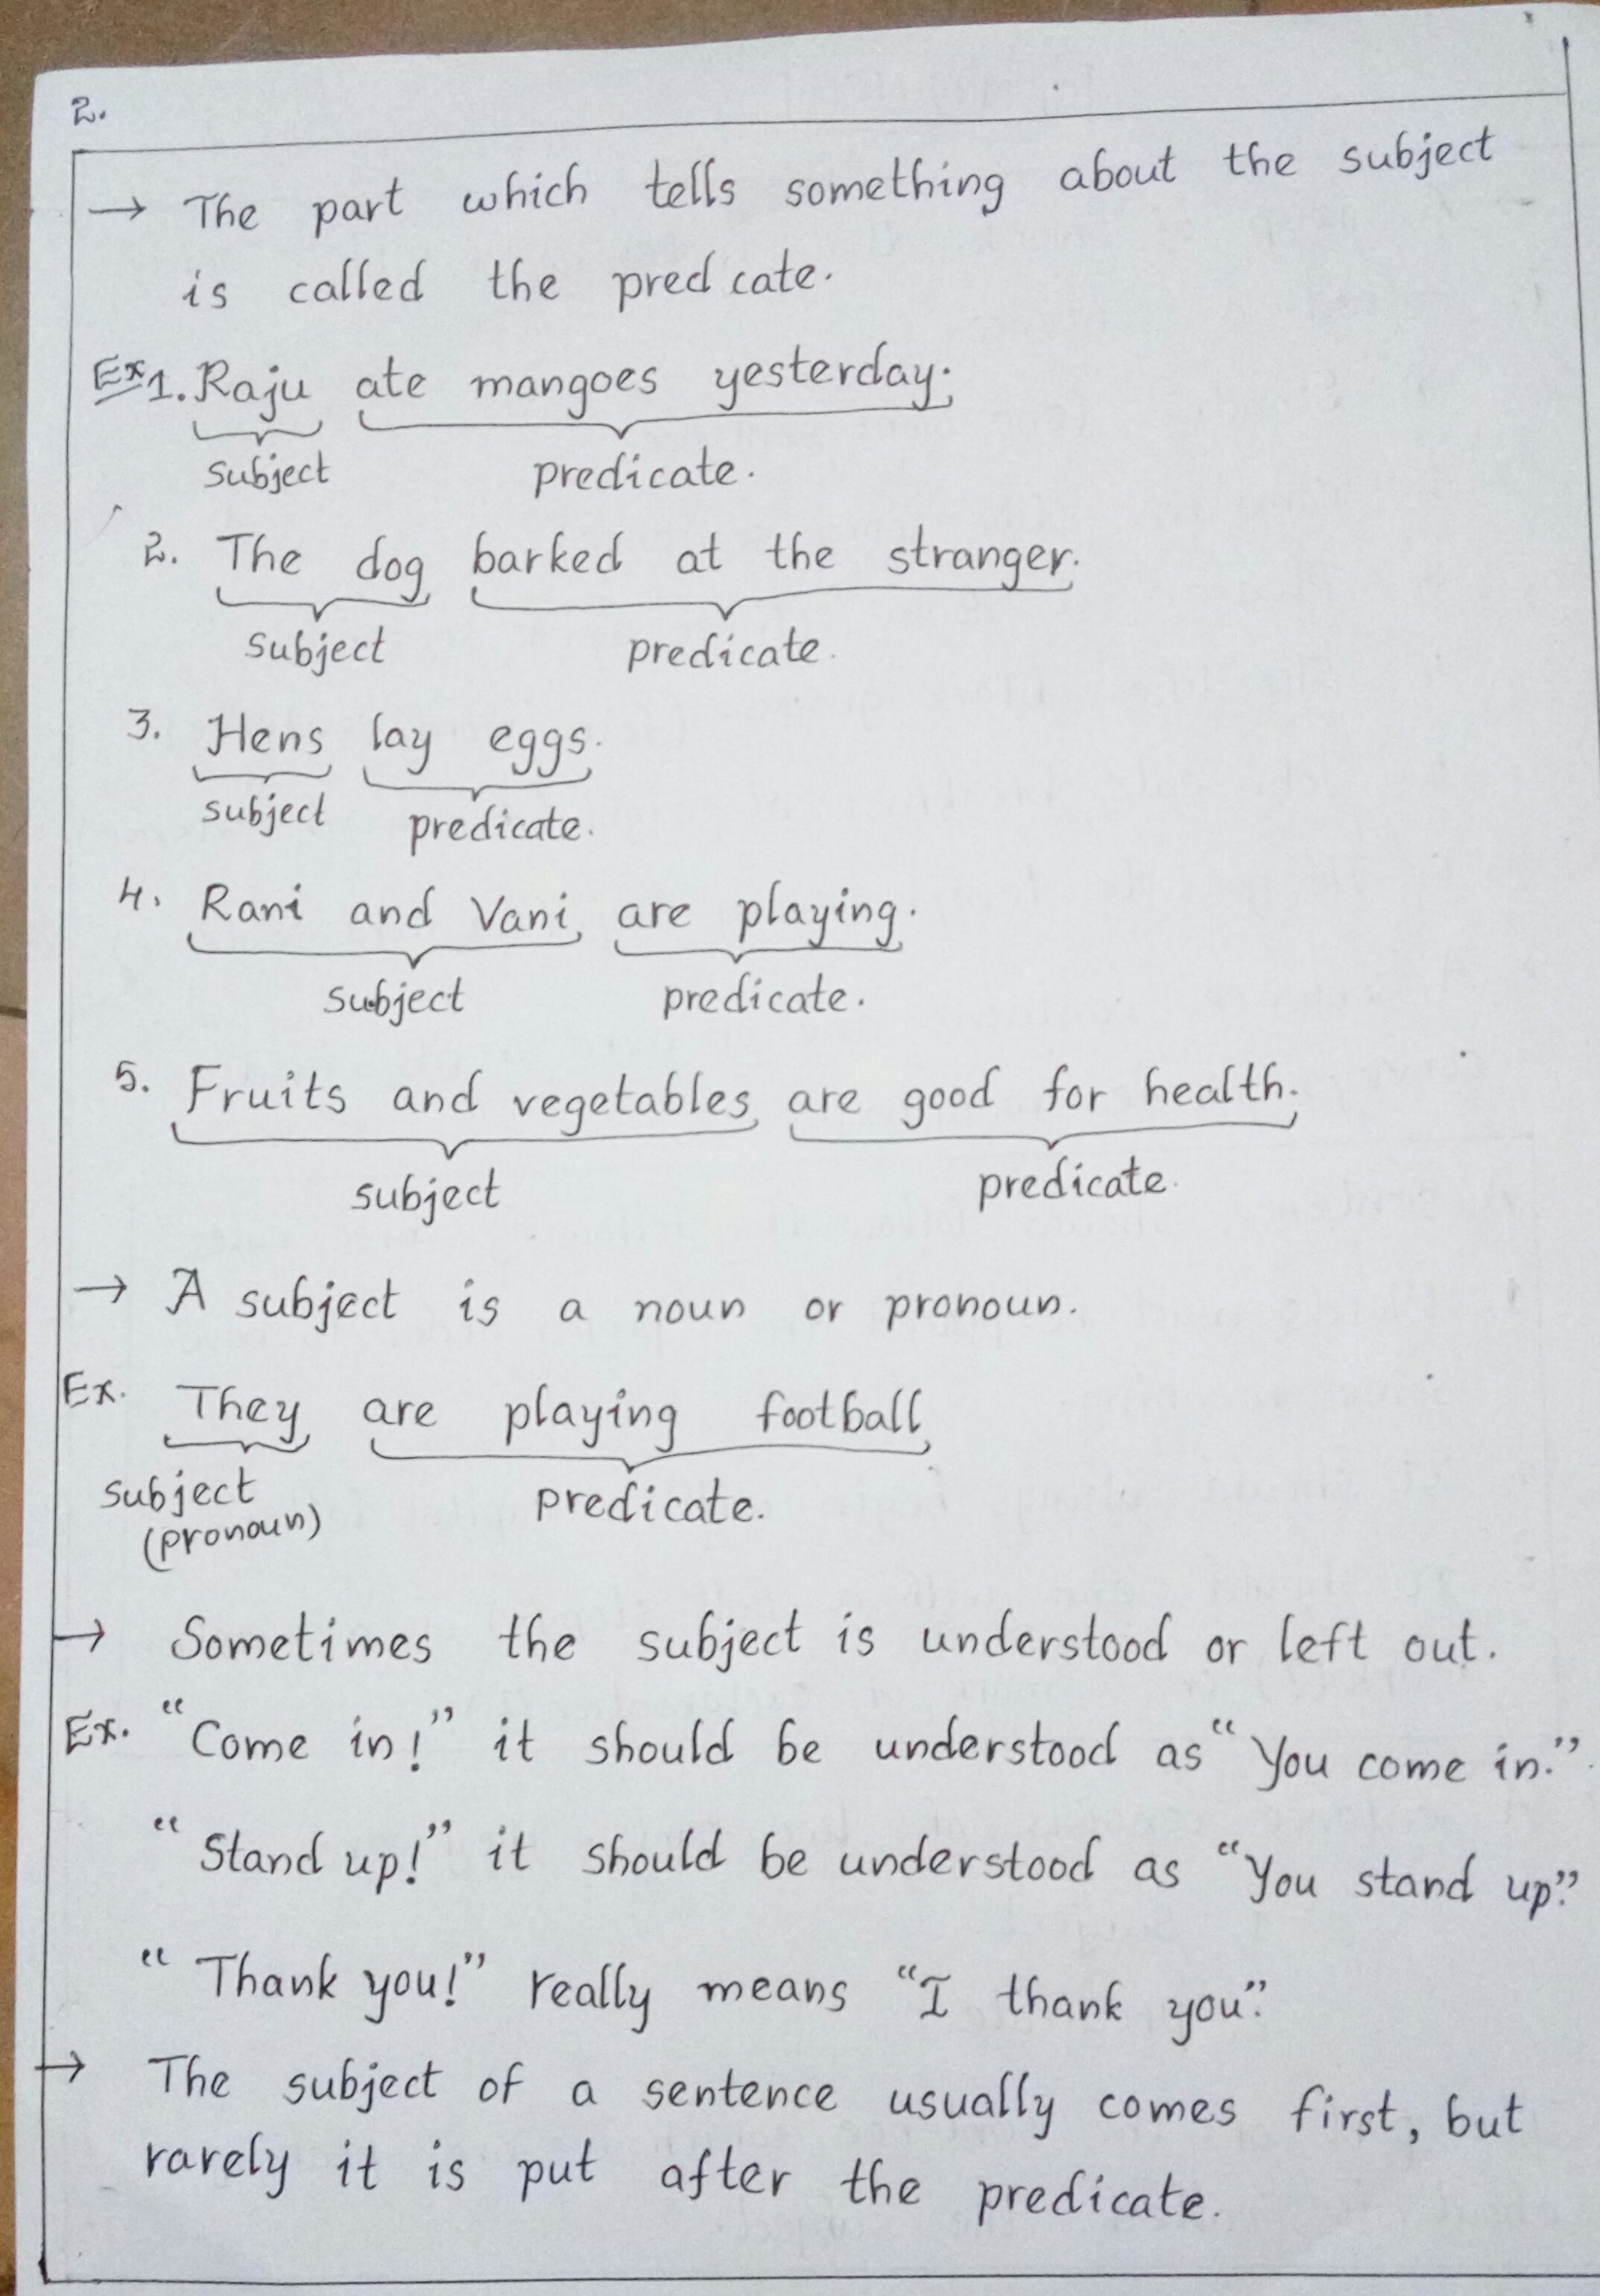 2.
→ The part which tells something about the subject
is called the pred cate.
Ex 1. Raju ate mangoes yesterday.
subject predicate.
2. The dog barked at the stranger.
subject predicate.
3. Hens lay eggs.
subject predicate.
4. Rani and Vani are playing.
subject predicate.
5. Fruits and vegetables are good for health.
subject predicate.
→ A subject is a noun or pronoun.
Ex. They are playing football
subject predicate.
(pronoun)
→ Sometimes the subject is understood or left out.
Ex. "Come in!" it should be understood as "You come in."
"Stand up!" it should be understood as "You stand up".
"Thank you!" really means "I thank you".
→ The subject of a sentence usually comes first, but
rarely it is put after the predicate.